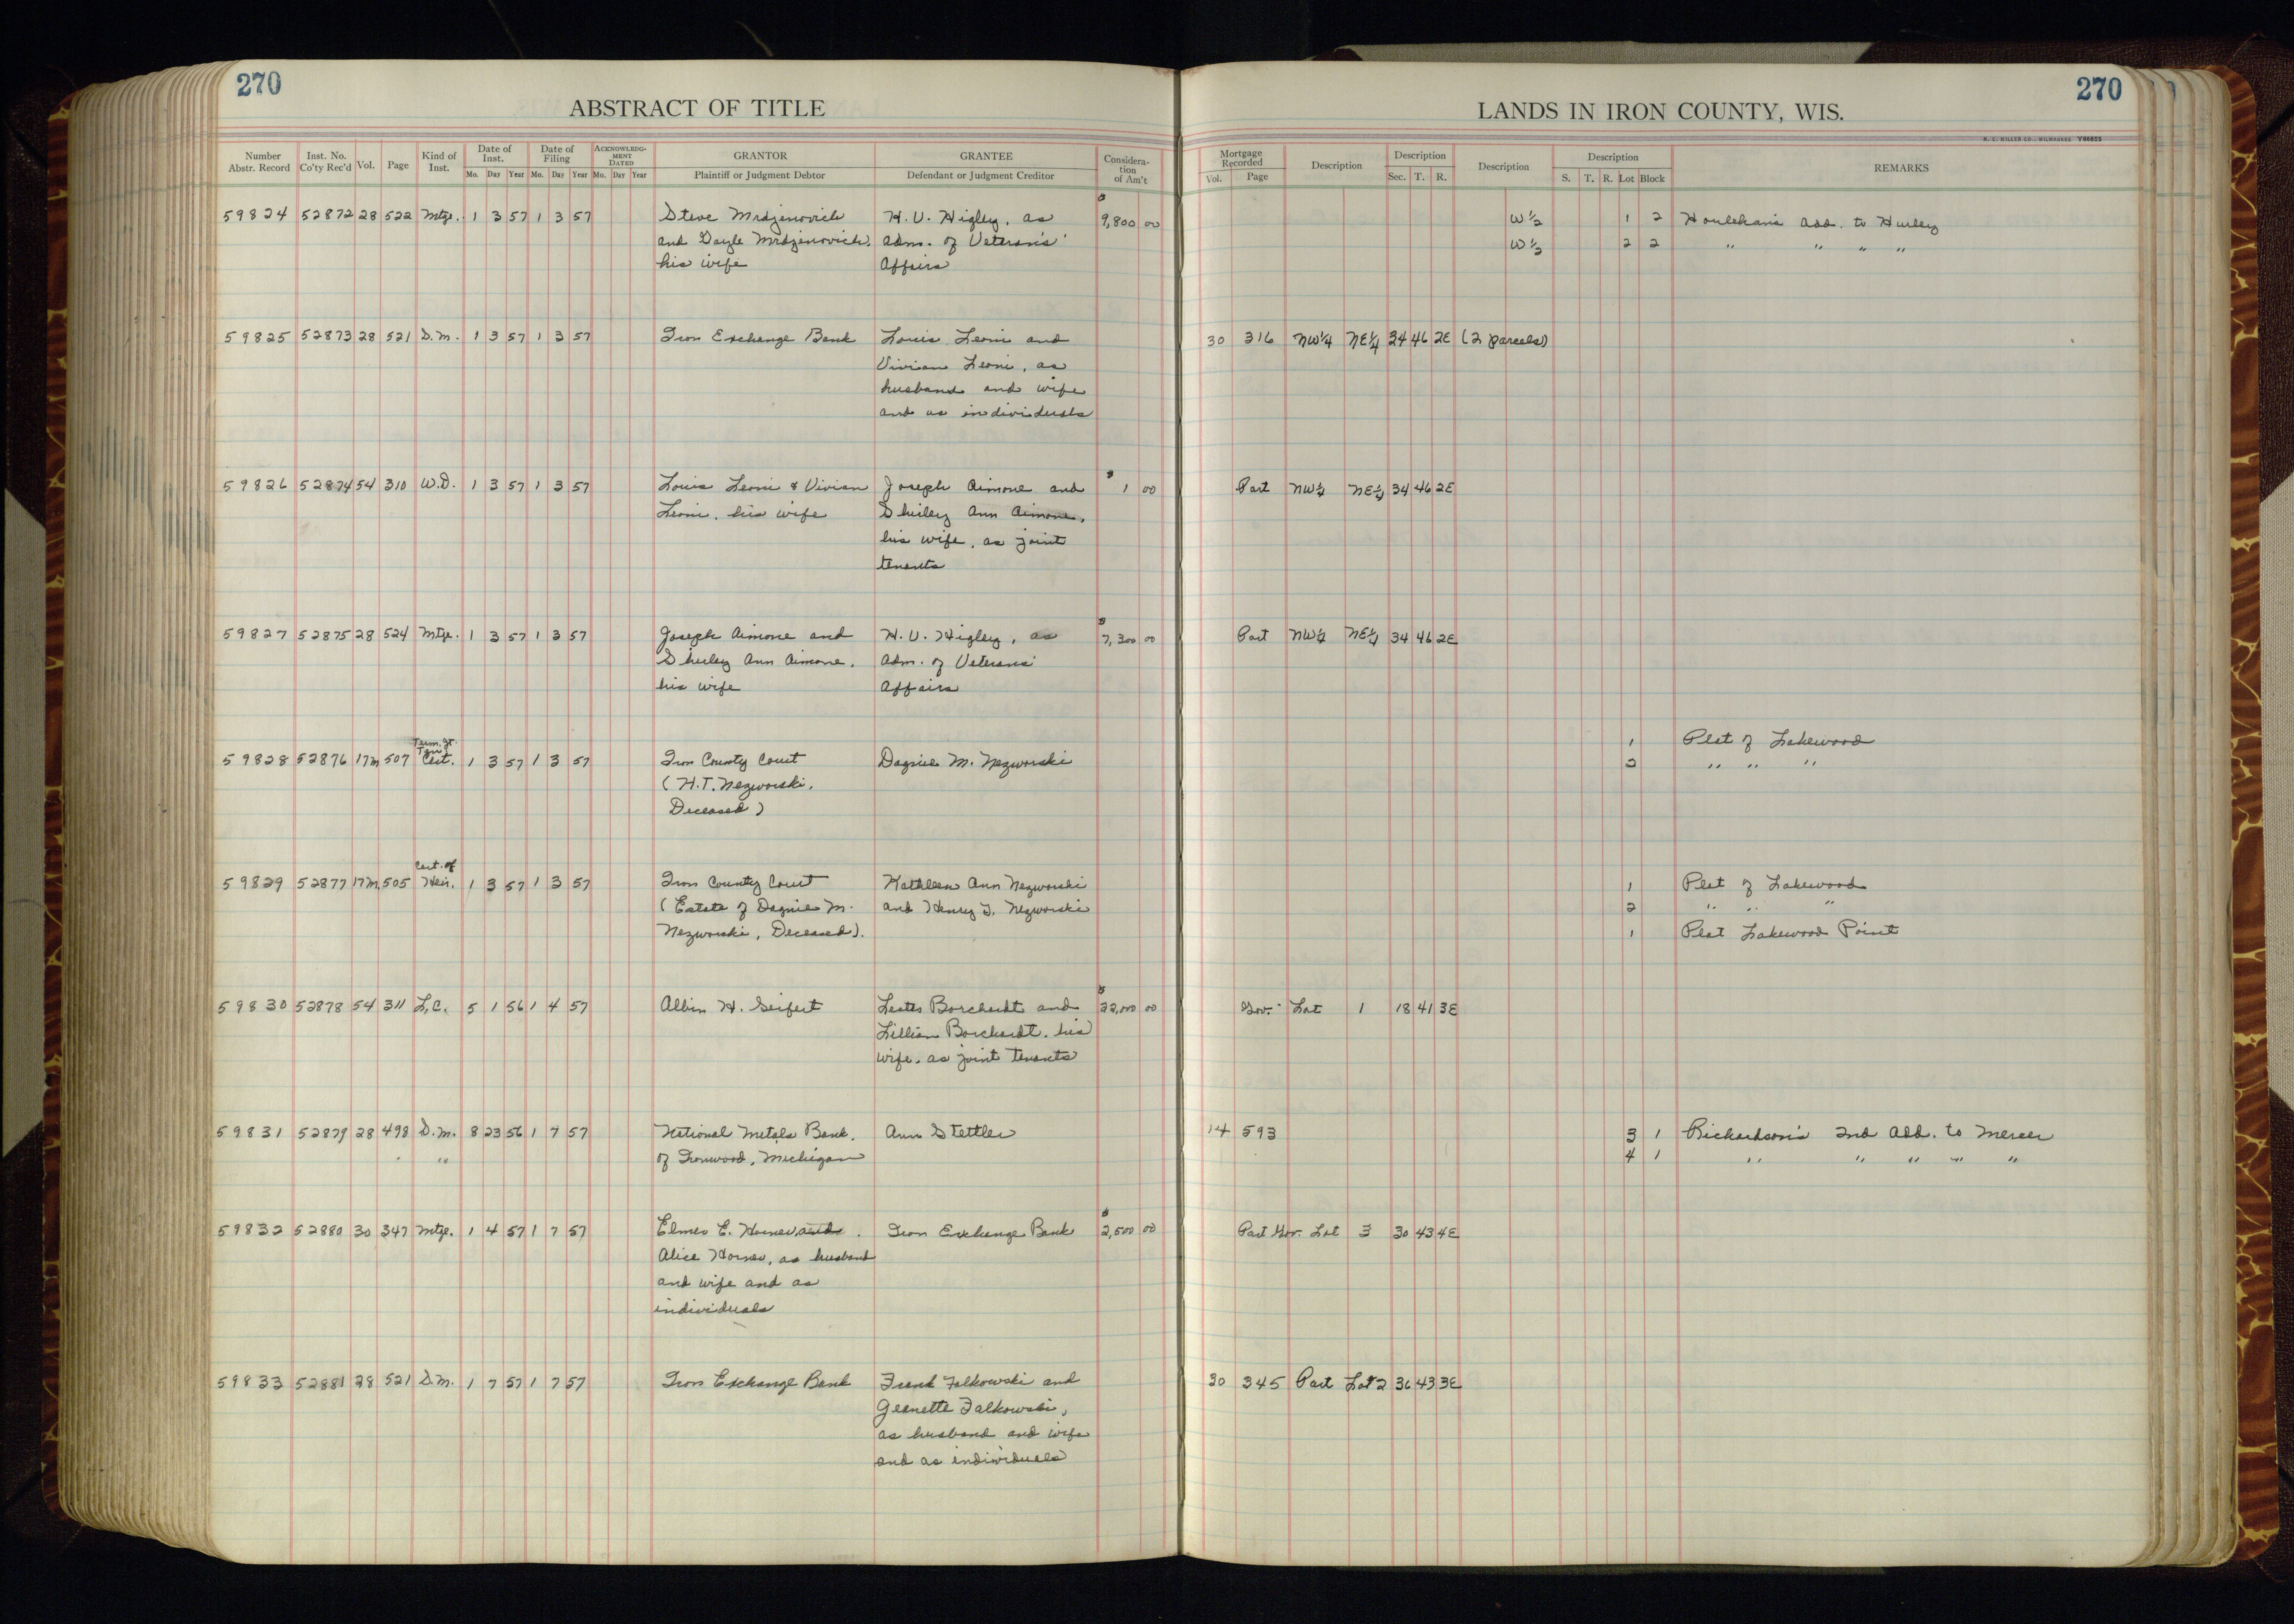 270
270
ABSTRACT OF TITLE
LANDS IN IRON COUNTY, WIS.
H. C. MILLER CO., MILWAUKEE Y66855
Number Abstr. Record Inst. No. Co'ty Rec'd Vol. Page Kind of Inst. Date of Inst. Mo. Day Year Date of Filing Mo. Day Year ACKNOWLEDGMENT DATED Mo. Day Year GRANTOR Plaintiff or Judgment Debtor GRANTEE Defendant or Judgment Creditor Consideration of Am't Mortgage Recorded Vol. Page Description Description Sec. T. R. Description Description S. T. R. Lot Block REMARKS
59824 52872 28 522 Mtge. 1 3 57 1 3 57 Steve Mrdjenovich H. V. Higley, as $9,800 00 W½ 1 2 Houlehan's Add. to Hurley
and Gayle Mrdjenovich, Adm. of Veteran's' W½ 2 2 " " " "
his wife Affairs
59825 52873 28 521 D.M. 1 3 57 1 3 57 Iron Exchange Bank Louis Leoni and 30 316 NW¼ NE¼ 34 46 2E (2 parcels)
Vivian Leoni, as
husband and wife
and as individuals
59826 52874 54 310 W.D. 1 3 57 1 3 57 Louis Leoni & Vivian Joseph Aimone and $1 00 Part NW¼ NE¼ 34 46 2E
Leoni, his wife Shirley Ann Aimone,
his wife, as joint
tenants
59827 52875 28 524 Mtge. 1 3 57 1 3 57 Joseph Aimone and H. V. Higley, as $7,300 00 Part NW¼ NE¼ 34 46 2E
Shirley Ann Aimone, Adm. of Veterans'
his wife Affairs
Term. Jt. 1 Plat of Lakewood
Ten.
59828 52876 17M 507 Cert. 1 3 57 1 3 57 Iron County Court Dagnie M. Nezworski 2 " " "
(H.T. Nezworski,
Deceased)
Cert. of
59829 52877 17M 505 Heir. 1 3 57 1 3 57 Iron County Court Kathleen Ann Nezworski 1 Plat of Lakewood
(Estate of Dagnie M. and Henry T. Nezworski 2 " " "
Nezworski, Deceased). 1 Plat Lakewood Point
59830 52878 54 311 L.C. 5 1 56 1 4 57 Albin H. Seifert Lester Borchardt and $22,000 00 Gov. Lot 1 18 41 3E
Lillian Borchardt, his
wife, as joint tenants
59831 52879 28 498 D.M. 8 23 56 1 7 57 National Metals Bank, Ann Stettler 14 593 3 1 Richardson's 2nd Add. to Mercer
" of Ironwood, Michigan 4 1 " " " " "
59832 52880 30 347 Mtge. 1 4 57 1 7 57 Elmer E. Horner and Iron Exchange Bank $2,500 00 Part Gov. Lot 3 30 43 4E
Alice Horner, as husband
and wife and as
individuals
59833 52881 28 521 D.M. 1 7 57 1 7 57 Iron Exchange Bank Frank Falkowski and 30 345 Part Lot 2 36 43 3E
Jeanette Falkowski,
as husband and wife
and as individuals